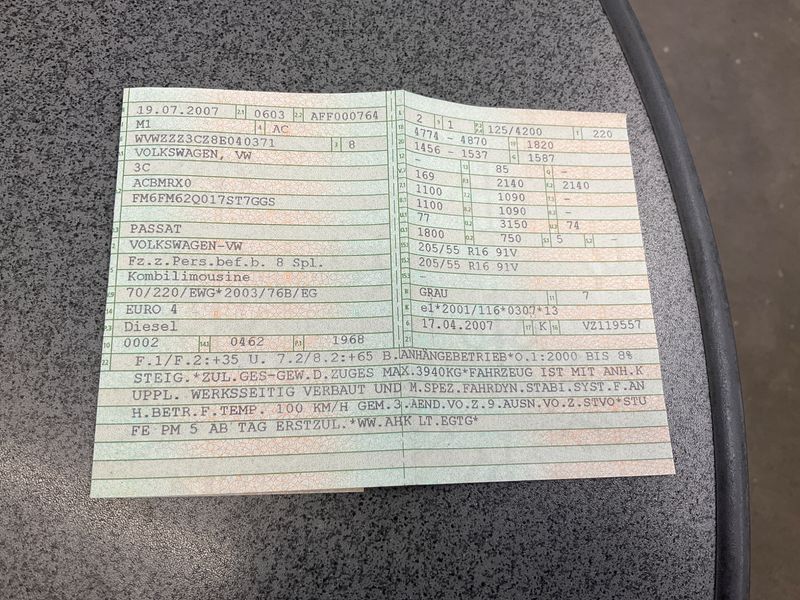 19.07.2007 2.1 0603 2.2 AFF000764
M1 4 AC
WVWZZZ3CZ8E040371 3 8
VOLKSWAGEN, VW
3C
ACBMRX0
FM6FM62Q017ST7GGS
PASSAT
VOLKSWAGEN-VW
Fz.z.Pers.bef.b. 8 Spl.
Kombilimousine
70/220/EWG*2003/76B/EG
EURO 4
Diesel
10 0002 14.1 0462 P.1 1968
L 2 9 1 P.2 P.4 125/4200 T 220
18 4774 - 4870 19 1820
20 1456 - 1537 G 1587
12 - 13 85 Q -
V.7 169 F.1 2140 F.2 2140
7.1 1100 7.2 1090 7.3 -
8.1 1100 8.2 1090 8.3 -
U.1 77 U.2 3150 U.3 74
O.1 1800 O.2 750 S.1 5 S.2 -
15.1 205/55 R16 91V
15.2 205/55 R16 91V
15.3 -
R GRAU 11 7
K e1*2001/116*0307*13
6 17.04.2007 17 K 16 VZ119557
21
22 F.1/F.2:+35 U. 7.2/8.2:+65 B.ANHÄNGEBETRIEB*O.1:2000 BIS 8%
STEIG.*ZUL.GES-GEW.D.ZUGES MAX.3940KG*FAHRZEUG IST MIT ANH.K
UPPL. WERKSSEITIG VERBAUT UND M.SPEZ.FAHRDYN.STABI.SYST.F.AN
H.BETR.F.TEMP. 100 KM/H GEM.3.AEND.VO.Z.9.AUSN.VO.Z.STVO*STU
FE PM 5 AB TAG ERSTZUL.*WW.AHK LT.EGTG*